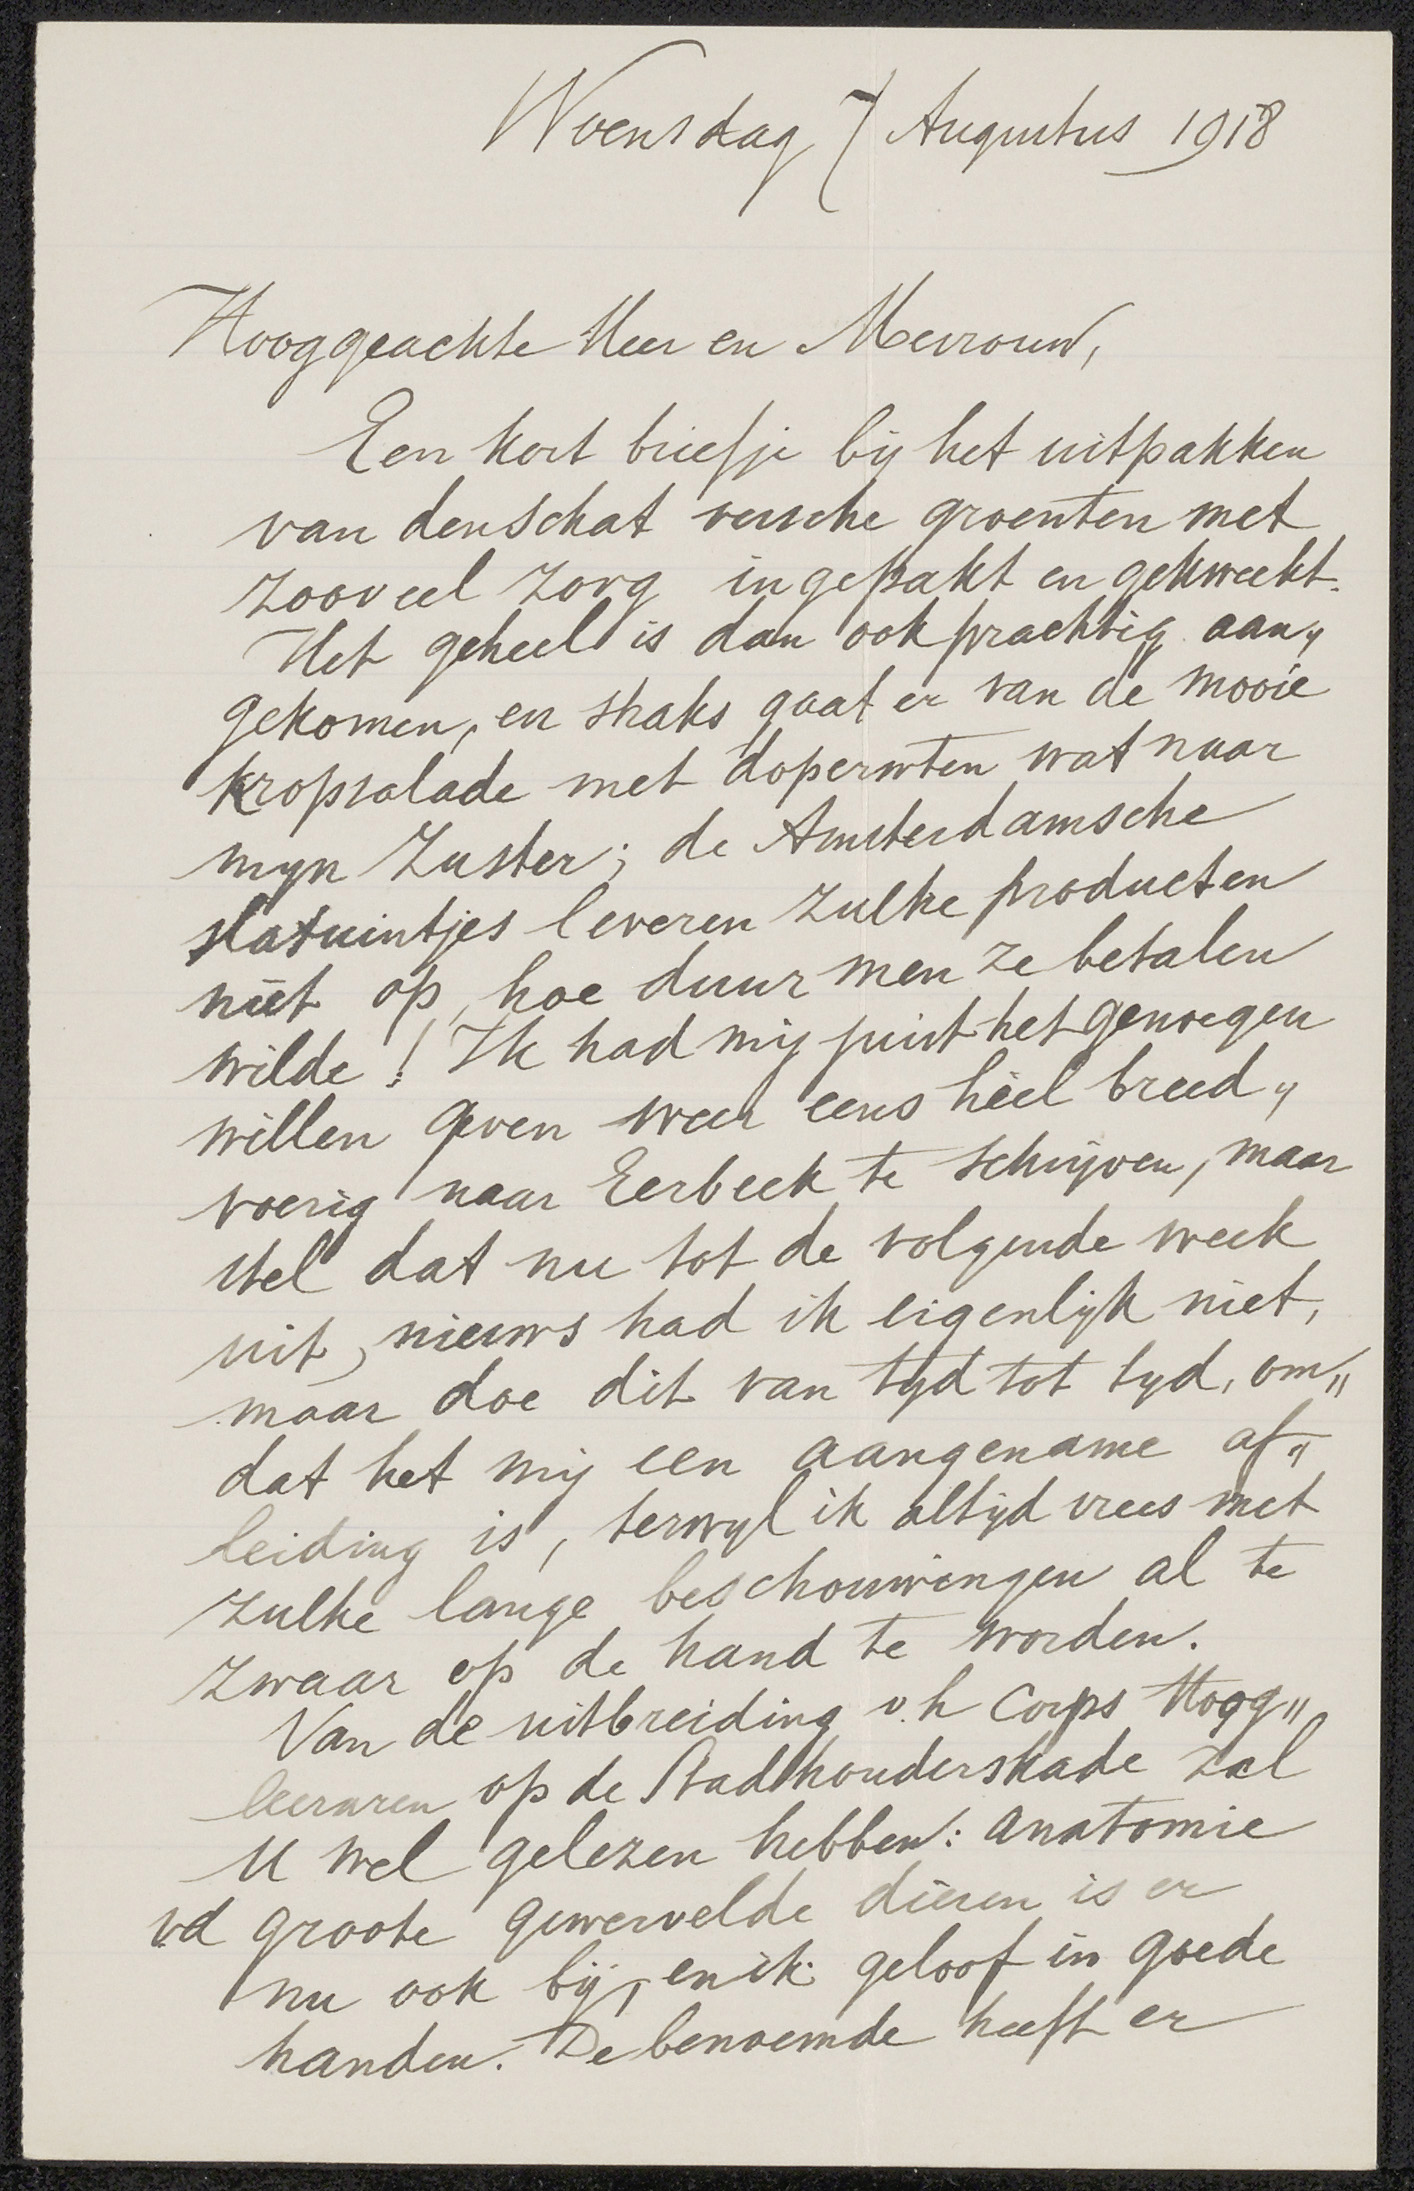 Woensdag 7 Augustus 1918
Hooggeachte Heer en Mevrouw,
Een kort briefje bij het uitpakken
van den schat versche groenten met
zooveel zorg ingepakt en gekweekt.
Het geheel is dan ook prachtig aan„
gekomen, en straks gaat er van de mooie
kropsalade met doperwten wat naar
mijn Zuster; de Amsterdamsche
slatuintjes leveren zulke producten
niet op, hoe duur men ze betalen
wilde! Ik had mij juist het genoegen
willen geven weer eens heel breed„
voerig naar Eerbeek te schrijven, maar
stel dat nu tot de volgende week
uit, nieuws had ik eigenlijk niet,
maar doe dit van tijd tot tijd, om„
dat het mij een aangename af„
leiding is, terwijl ik altijd vrees met
zulke lange beschouwingen al te
zwaar op de hand te worden.
Van de uitbreiding v.h Corps Hoog„
leeraren op de Stadhouderskade zal
U wel gelezen hebben: anatomie
vd groote gewervelde dieren is er
nu ook bij, en ik geloof in goede
handen. De benoemde heeft er